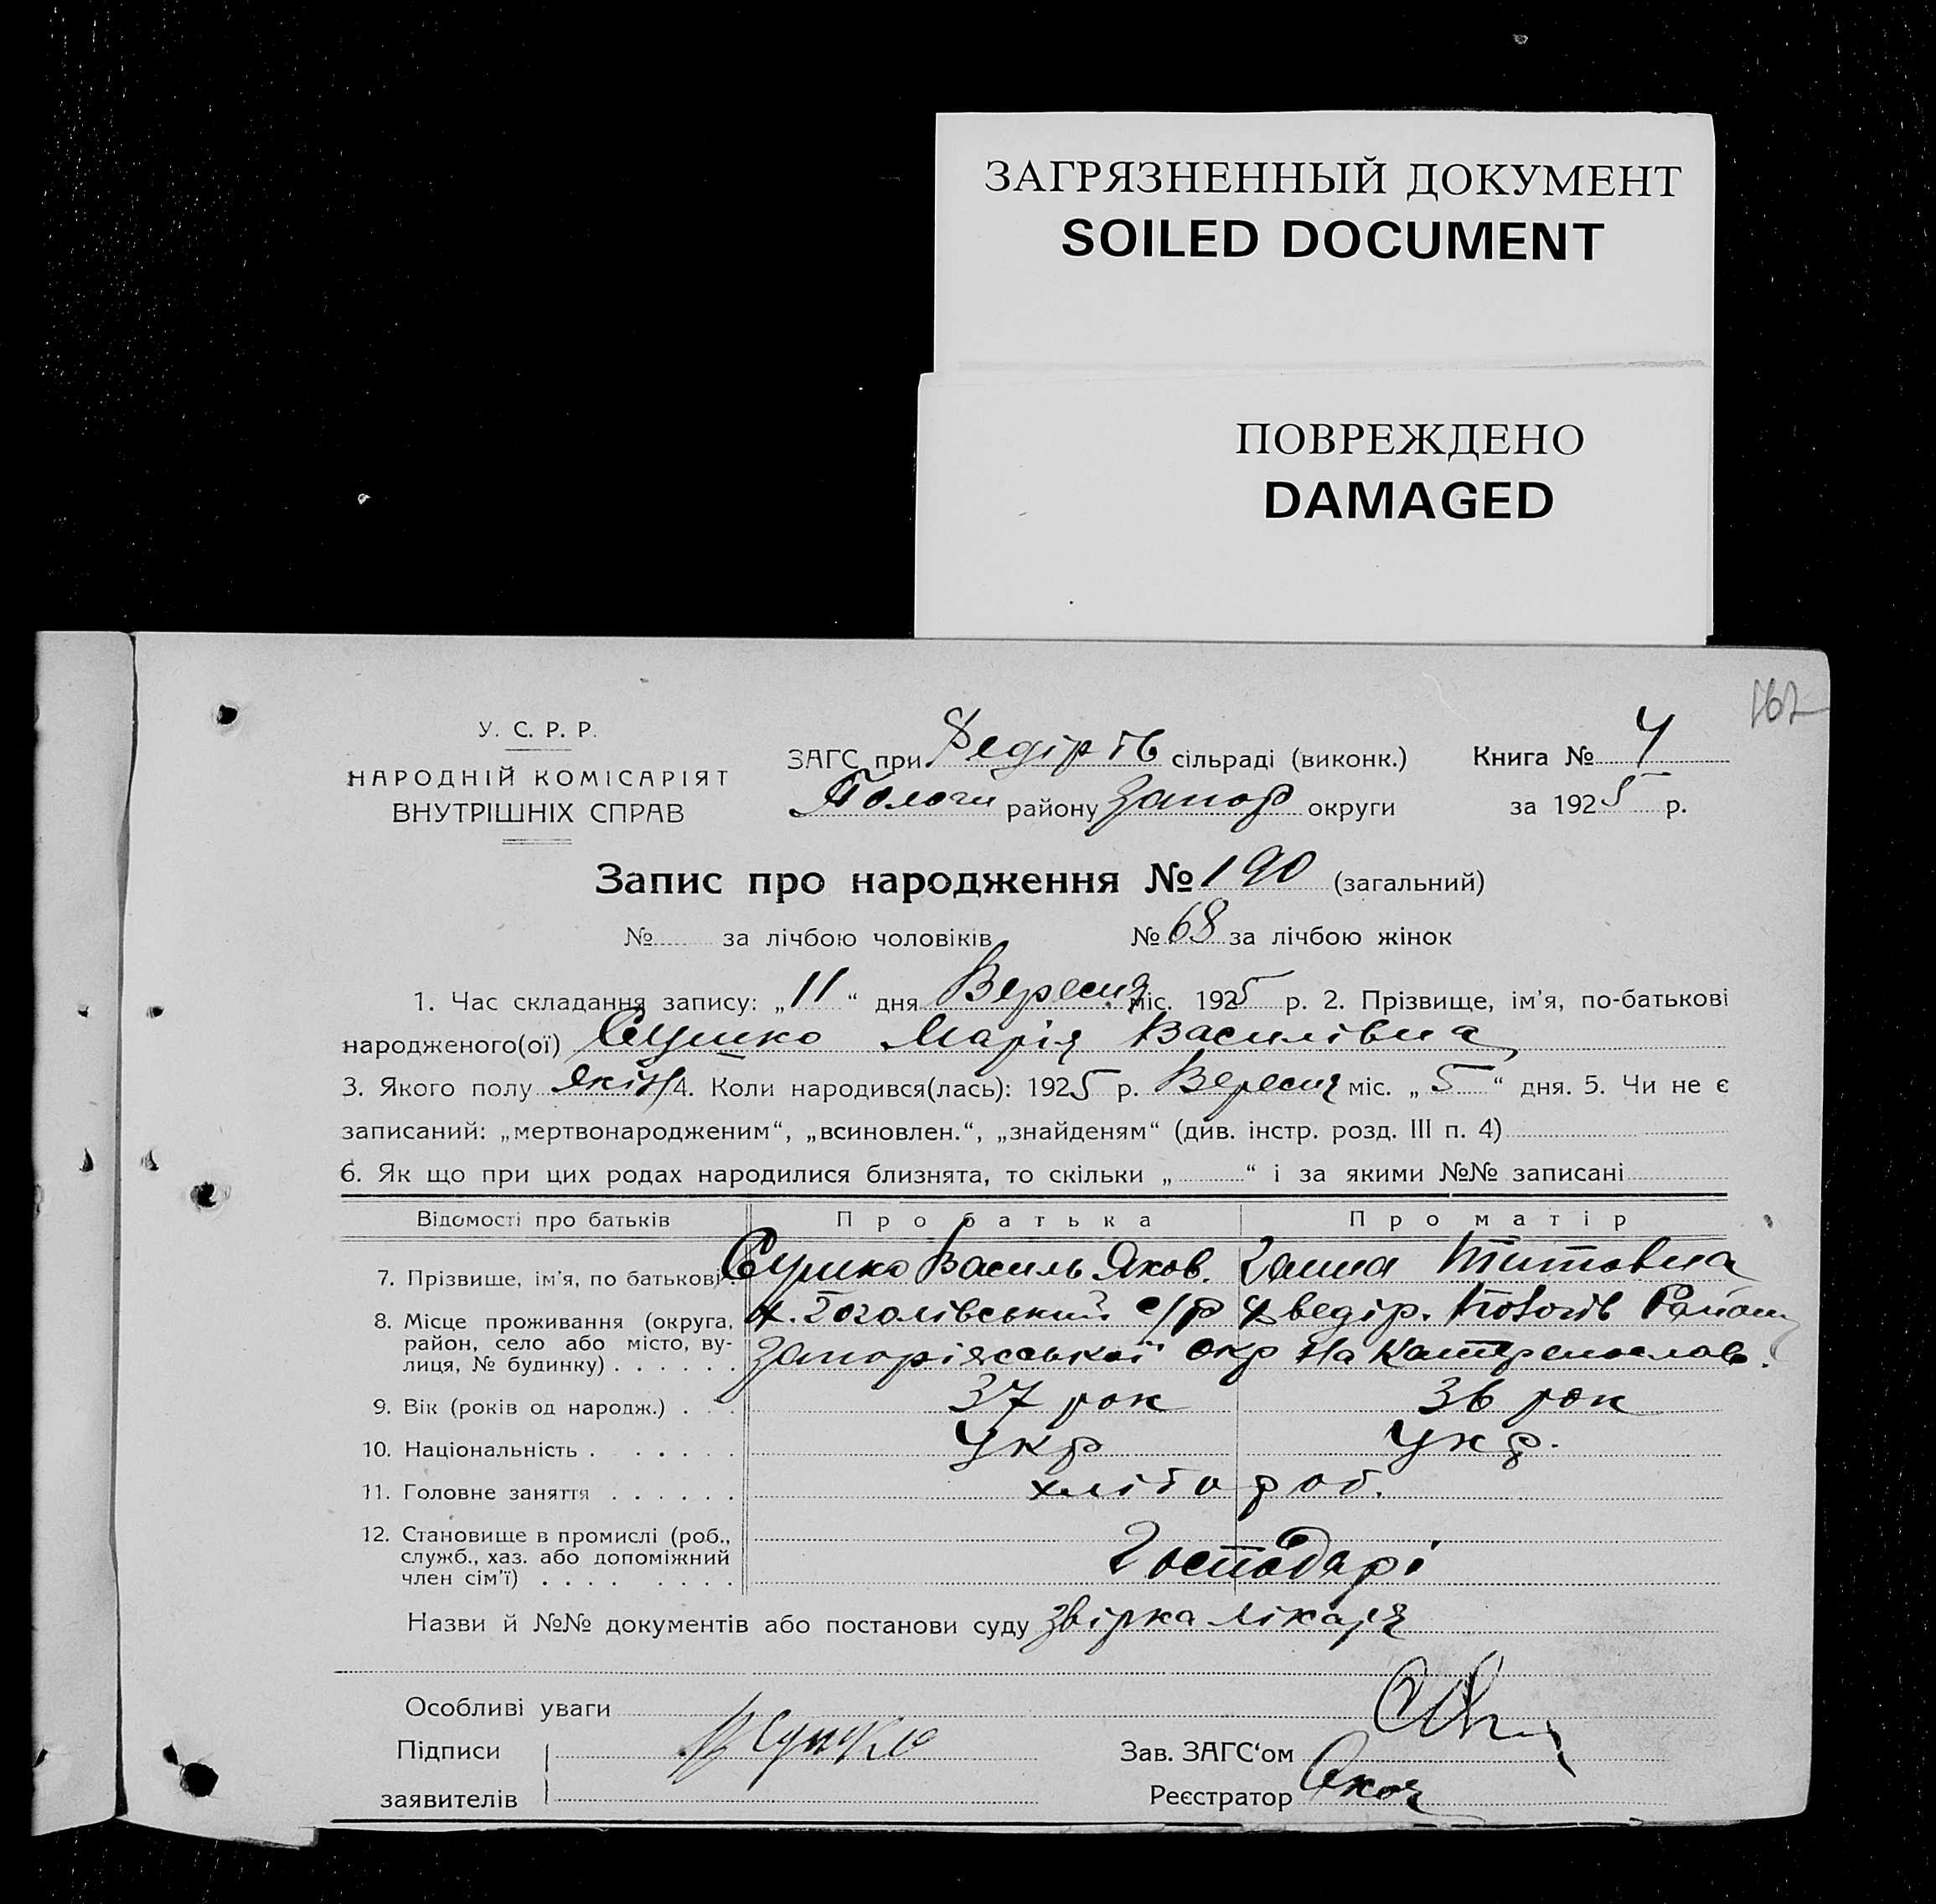 ЗАГРЯЗНЕННЫЙ ДОКУМЕНТ
SOILED DOCUMENT
ПОВРЕЖДЕНО
DAMAGED
162
У. С. Р. Р.
НАРОДНІЙ КОМІСАРІЯТ
ВНУТРІШНІХ СПРАВ
ЗАГС при Федірів сільраді (виконк.)
Пологи району Запор округи
Книга № 4
за 1925 р.
Запис про народження № 190 (загальний)
№ за лічбою чоловіків № 68 за лічбою жінок
1. Час складання запису: „11“ дня Вересня міс. 1925 р. 2. Прізвище, ім'я, по-батькові
народженого(ої) Сушко Марія Василівна
3. Якого полу жін 4. Коли народився(лась): 1925 р. Вересня міс. „5“ дня. 5. Чи не є
записаний: „мертвонародженим“, „всиновлен.“, „знайденям“ (див. інстр. розд. III п. 4)
6. Як що при цих родах народилися близнята, то скільки „ “ і за якими №№ записані
Відомості про батьків Про батька Про матір
7. Прізвище, ім'я, по батькові Сушко Василь Яков. Ганна Титовна
8. Місце проживання (округа, район, село або місто, вулиця, № будинку) х. Гоголівський с/р Федір. Пологів Району
Запоріжської Окр на Катеренослав.
9. Вік (років од народж.) 37 рок 36 рок
10. Національність Укр Укр.
11. Головне заняття хлібороб.
12. Становище в промислі (роб., служб., хаз. або допоміжний член сім'ї) Господарі
Назви й №№ документів або постанови суду Звірка лікаря
Особливі уваги
Підписи В Сушко Зав. ЗАГС'ом
заявителів Реєстратор